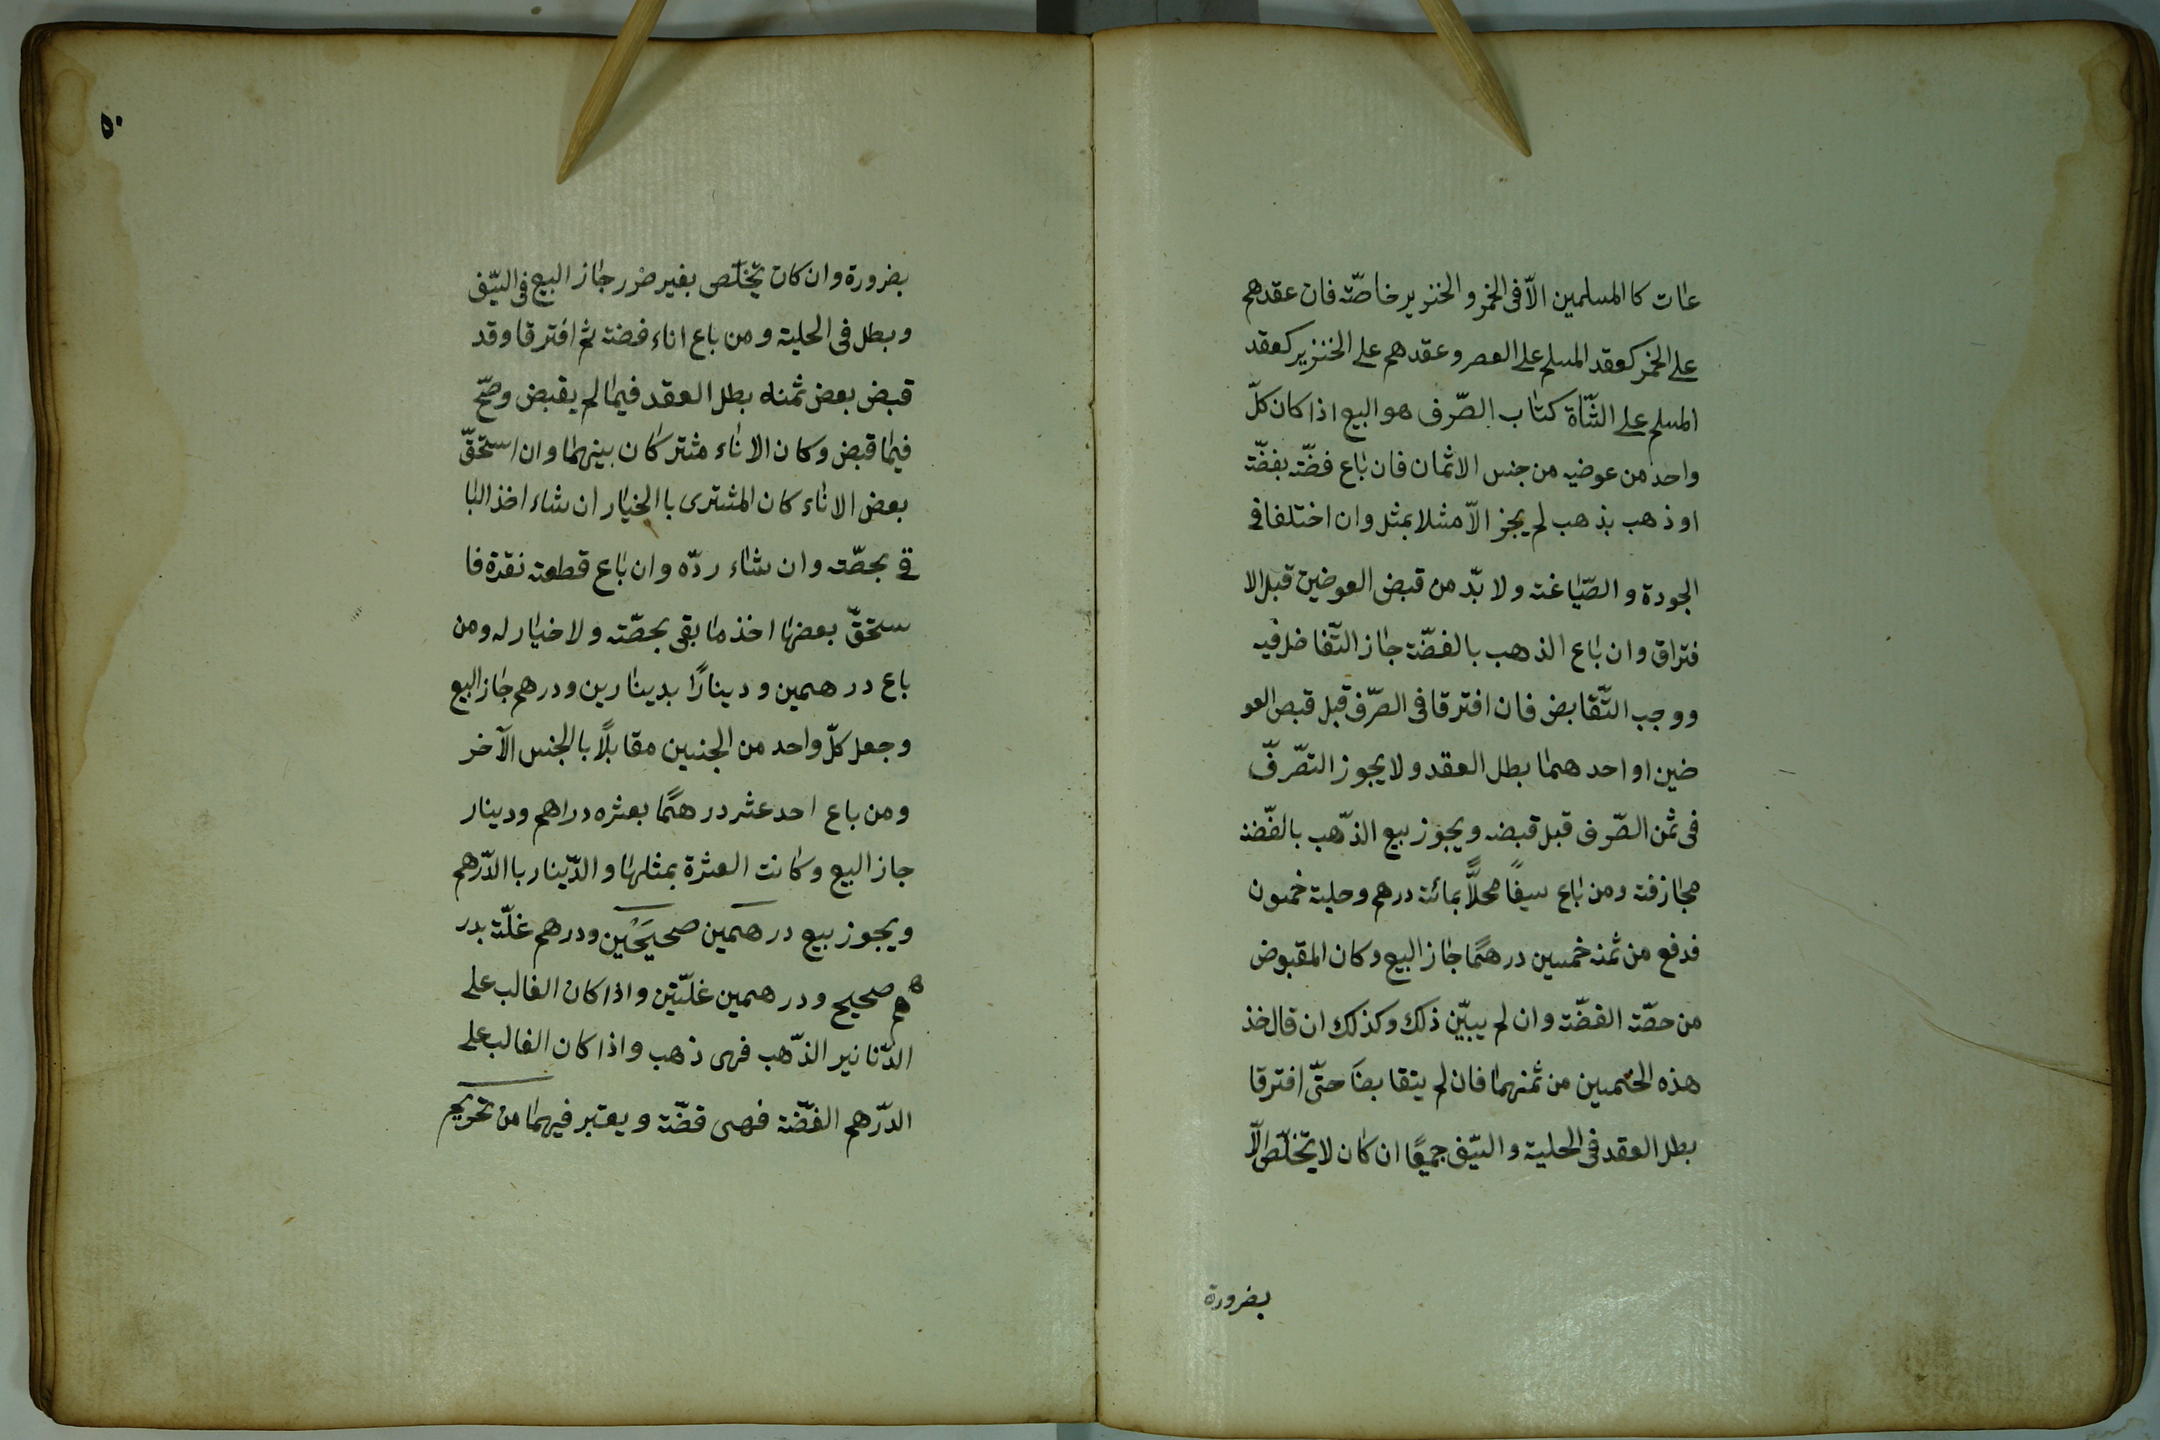 عات كا المسلمين الّا فى الخمر و الخنزير خاصّة فان عقدهم
على الخمر كعقد المسلم على العصر وعقدهم على الخنزير كعقد
المسلم على الشّاة كتاب الصّرف هو البيع اذا كان كلّ
واحد من عوضيه من جنس الاثمان فان باع فضّة بفضّة
او ذهب بذهب لم يجز الّا مثلا بمثل وان اختلفا فى
الجودة و الصّياغة ولا بدّ من قبض العوضين قبل الا
فتراق وان باع الذهب بالفضّة جاز التّفاضل فيه
ووجب التّقابض فان افترقا فى الصّرف قبل قبض العو
ضين او احدهما بطل العقد ولا يجوز التصّرفّ
فى ثمن الصّرف قبل قبضه ويجوز بيع الذّهب بالفضّة
مجازفة ومن باع سيفًا محلاًّ بمائة درهم وحلية خمسون
فدفع من ثمنه خمسين درهمًا جاز البيع وكان المقبوض
من حصّة الفضّة وان لم يبيّن ذلك وكذلك ان قال خذ
هذه الخمسين من ثمنهما فان لم يتقابضا حتّى افترقا
بطل العقد فى الحلية و السّيف جميعًا ان كان لا يتخلّص الّا
بضرورة
٥٠
بضرورة وان كان يتخلّص بغير ضرر جاز البيع فى السّيف
وبطل فى الحلية ومن باع اناء فضة ثم افترقا وقد
قبض بعض ثمنه بطل العقد فيما لم يقبض وصّح
فيما قبض وكان الاناء مشتركان بينهما وان استحقّ
بعض الاناء كان المشترى با الخيار ان شاء اخذ البا
قى بحصّة وان شاء ردّه وان باع قطعة نقرة فا
ستحقّ بعضها اخذ ما بقى بحصّته ولا خيار له ومن
باع درهمين و دينارًا بدينارين ودرهم جاز البيع
وجعل كلّ واحد من الجنسين مقابلًا با الجنس الآخر
ومن باع احد عشر درهمًا بعشره دراهم ودينار
جاز البيع وكانت العشرة بمثلها و الدّينار با الدّرهم
ويجوز بيع درهمين صحيحين ودرهم غلّة بدر
هم صحيح ودرهمين غلّتين واذا كان الغالب على
الدّنانير الذّهب فهى ذهب واذا كان الغالب على
الدّرهم الفضّة فهى فضّة ويعتبر فيهما من تحريم